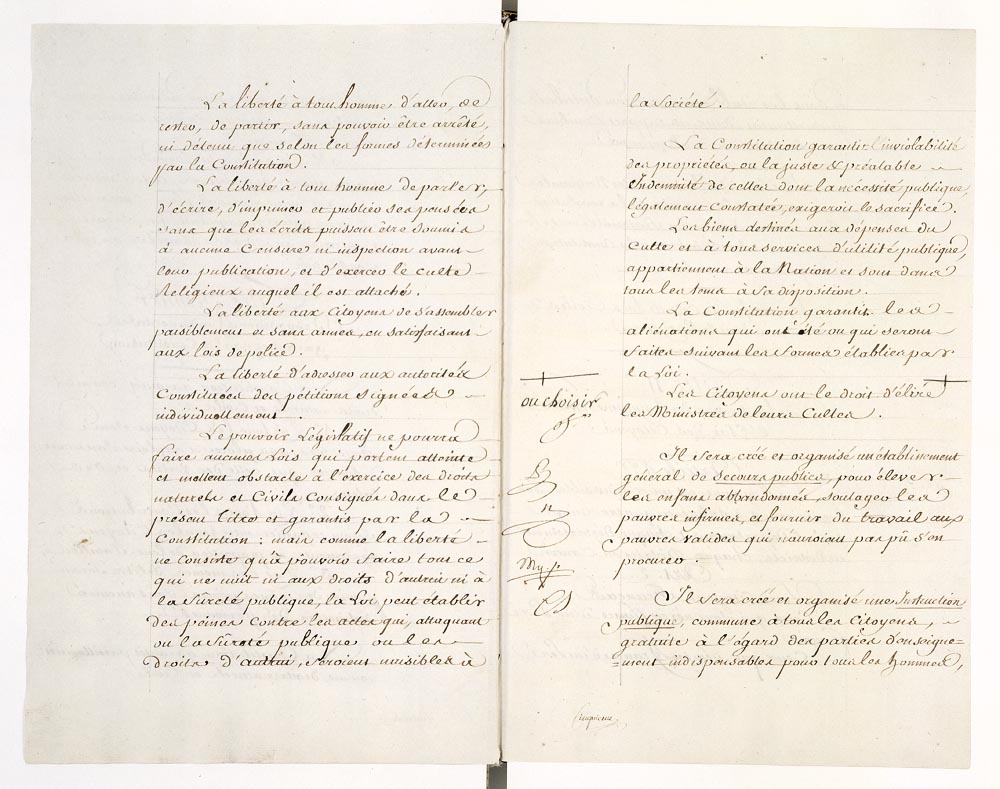 La liberté à tout homme d'aller, de
rester, de partir, sans pouvoir être arrêté,
ni détenu que selon les formes déterminées
par la Constitution.
La liberté à tout homme de parler,
d'écrire, d'imprimer et publier ses pensées
sans que les écrits puissent être soumis
à aucune Censure ni inspection avant
leur publication, et d'exercer le culte
Religieux auquel il est attaché.
La liberté aux Citoyens de s'assembler
paisiblement et sans armes, en satisfaisant
aux lois de police.
La liberté d'adresser aux autorités
Constituées des pétitions signées
individuellement.
Le pouvoir Législatif ne pourra
faire aucunes Lois qui portent atteinte
et mettent obstacle à l'exercice des droits
naturels et Civils consignés dans le
présent titre et garantis par la
Constitution ; mais comme la liberté
ne consiste qu'à pouvoir faire tout ce
qui ne nuit ni aux droits d'autrui ni à
la Sûreté publique, la Loi peut établir
des peines contre les actes qui, attaquant
ou la Sûreté publique ou les
droits d'autrui, seroient nuisibles à
la Société.
La Constitution garantit l'inviolabilité
des propriétés, ou la juste & préalable
Indemnité de celles dont la nécessité publique,
légalement Constatée, exigeroit le sacrifice.
Les biens destinés aux dépenses du
Culte et à tous services d'utilité publique,
appartiennent à la Nation et sont dans
tous les tems à sa disposition.
La Constitution garantit les
aliénations qui ont été ou qui seront
faites suivant les formes établies par
la Loi.
Les Citoyens ont le droit d'élire
ou choisir
les Ministres de leurs Cultes.
Il sera créé et organisé un établissement
général de Secours publics, pour élever
les enfans abbandonnés, soulager les
pauvres infirmes, et fournir du travail aux
pauvres valides qui n'auroient pas pû s'en
procurer.
Il sera créé et organisé une Instruction
publique, commune à tous les Citoyens,
gratuite à l'égard des parties d'enseigne-
=ment indispensables pour tous les hommes,